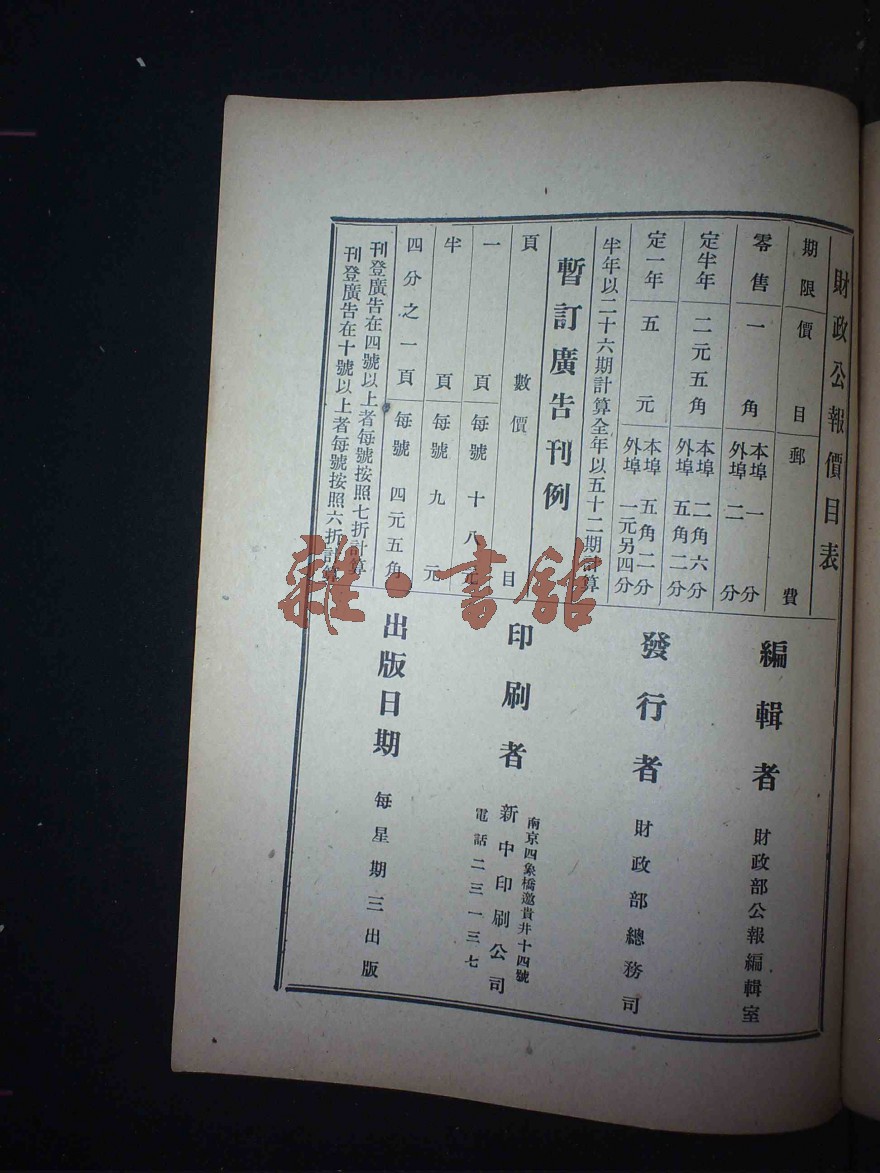 財政公報價目表
期限價目郵費
零售一角本埠一分外埠二分
定半年二元五角本埠二角六分外埠五角二分
定一年五元本埠五角二分外埠一元另四分
半年以二十六期計算全年以五十二期計算
暫訂廣告刊例
頁數價目
一頁每號十八元
半頁每號九元
四分之一頁每號四元五角
刊登廣告在四號以上者每號按照七折計算
刊登廣告在十號以上者每號按照六折計算
編輯者財政部公報編輯室
發行者財政部總務司
印刷者
南京四象橋邀貴井十四號
新中印刷公司
電話二三一三七
出版日期每星期三出版
雜·書館